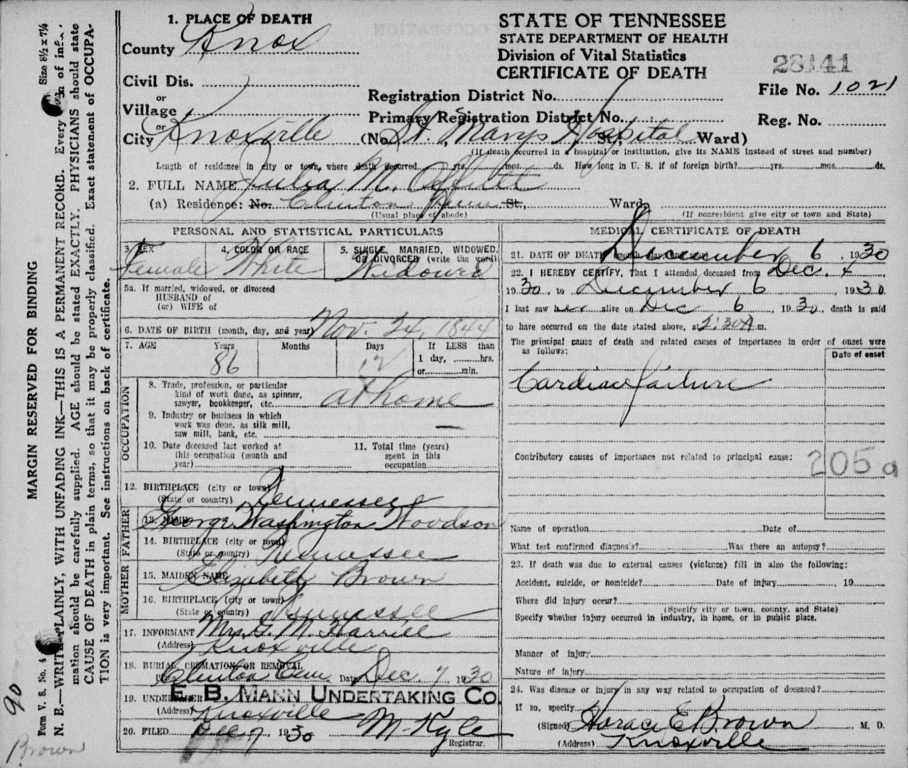 1. PLACE OF DEATH
County Knox
Civil Dis.
or
Village
or
City Knoxville (No. St. Mary's Hospital St., Ward)
STATE OF TENNESSEE
STATE DEPARTMENT OF HEALTH
Division of Vital Statistics
CERTIFICATE OF DEATH
23141
File No. 1021
Registration District No.
Primary Registration District No.
Reg. No.
(If death occurred in a hospital or institution, give its NAME instead of street and number)
Length of residence in city or town, where death occurred yrs. mos. ds. How long in U. S. if of foreign birth? yrs. mos. ds.
2. FULL NAME Julia M.
(a) Residence: No. Clinton Tenn St., Ward
(Usual place of abode) (If nonresident give city or town and State)
PERSONAL AND STATISTICAL PARTICULARS
3. SEX 4. COLOR OR RACE 5. SINGLE, MARRIED, WIDOWED, OR DIVORCED (write the word)
Female White Widowed
5a. If married, widowed, or divorced
HUSBAND of
(or) WIFE of
6. DATE OF BIRTH (month, day, and year) Nov. 24, 1844
7. AGE Years Months Days If LESS than
86 12 1 day, hrs.
or min.
OCCUPATION
8. Trade, profession, or particular
kind of work done, as spinner,
sawyer, bookkeeper, etc. at home
9. Industry or business in which
work was done, as silk mill,
saw mill, bank, etc. —
10. Date deceased last worked at
this occupation (month and
year)
11. Total time (years)
spent in this
occupation
12. BIRTHPLACE (city or town)
(State or country) Tennessee
FATHER
13. NAME George Washington Woodson
14. BIRTHPLACE (city or town)
(State or country) Tennessee
MOTHER
15. MAIDEN NAME Elizabeth Brown
16. BIRTHPLACE (city or town)
(State or country) Tennessee
17. INFORMANT Mrs. G. M. Harrill
(Address) Knoxville
18. BURIAL, CREMATION OR REMOVAL
Clinton Cem. Date Dec. 7, 1930
19. UNDERTAKER E. B. MANN UNDERTAKING CO.
(Address) Knoxville
20. FILED Dec 9, 1930 M. Kyle
Registrar.
MEDICAL CERTIFICATE OF DEATH
21. DATE OF DEATH December 6, 1930
22. I HEREBY CERTIFY, That I attended deceased from Dec. 4
1930, to December 6 1930.
I last saw her alive on Dec 6, 1930, death is said
to have occurred on the date stated above, at 2:30A m.
The principal cause of death and related causes of importance in order of onset were
as follows:
Date of onset
Cardiac failure
Contributory causes of importance not related to principal cause:
205a
Name of operation Date of
What test confirmed diagnosis? Was there an autopsy?
23. If death was due to external causes (violence) fill in also the following:
Accident, suicide, or homicide? Date of injury 19
Where did injury occur?
(Specify city or town, county, and State)
Specify whether injury occurred in industry, in home, or in public place.
Manner of injury
Nature of injury
24. Was disease or injury in any way related to occupation of deceased?
If so, specify
(Signed) Horace E. Brown M. D.
(Address) Knoxville
MARGIN RESERVED FOR BINDING
Form V. S. No. 4 Size 8½ x 7¼
N. B.—WRITE PLAINLY, WITH UNFADING INK—THIS IS A PERMANENT RECORD. Every item of infor-
mation should be carefully supplied. AGE should be stated EXACTLY. PHYSICIANS should state
CAUSE OF DEATH in plain terms, so that it may be properly classified. Exact statement of OCCUPA-
TION is very important. See instructions on back of certificate.
90
Brown